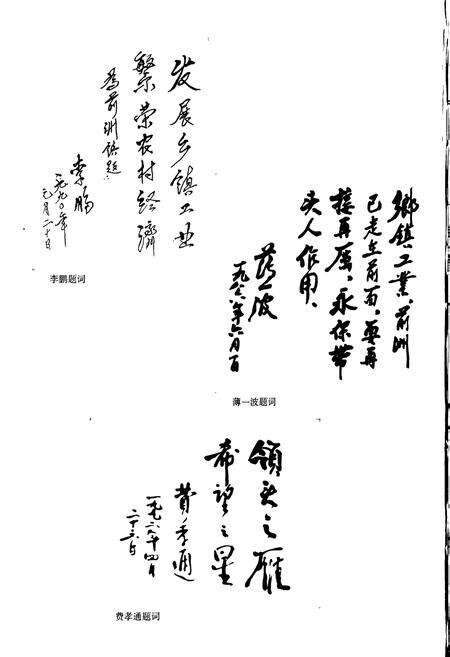 发展乡镇工业
繁荣农村经济
为前洲镇题
李鹏
一九九〇年
元月二十日
李鹏题词
鄉鎮工業,前洲
已走在前面,要再
接再厲,永保带
头人作用。
薄一波
一九八六年六月一日
薄一波题词
領头之雁
希望之星
費孝通
一九八六年四月
二十六日
费孝通题词